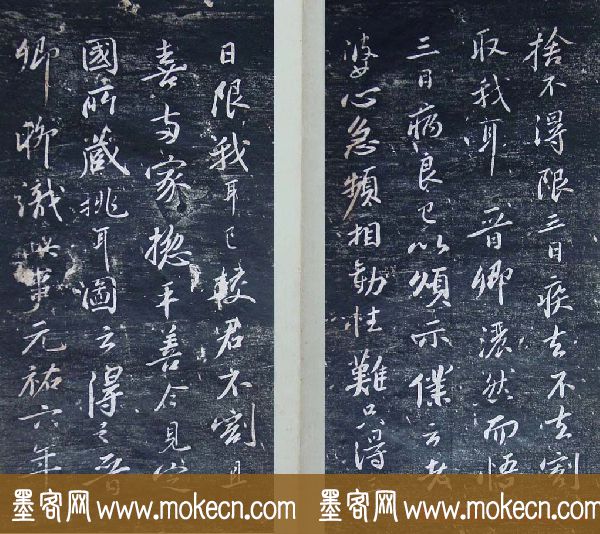 捨不得限三日疾去不去割
取我耳 晉卿灑然而悟
三日病良已以頌示僕云老
婆心急頻相勸性難只得
日限我耳已較君不割且
喜兩家揔平善今見定
國所藏挑耳圖云得之晉
卿聊識此事元祐六年
墨客网 www.mokecn.com 墨客网 www.mokecn.com